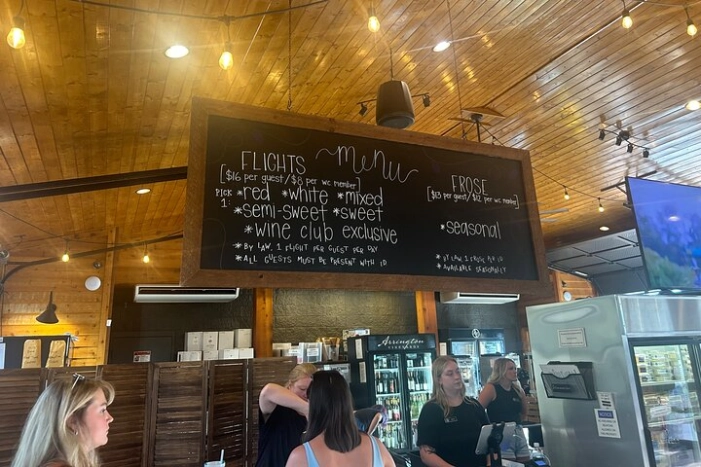 menu
FLIGHTS
[$16 per guest/$8 per wc member]
PICK 1:
*red *white *mixed
*semi-sweet *sweet
*wine club exclusive
*BY LAW, 1 FLIGHT PER GUEST PER DAY
*ALL GUESTS MUST BE PRESENT WITH ID
FROSE
[$13 per guest/$12 per wc member]
*seasonal
1 FROSE PER ID
*AVAILABLE SEASONALLY
Arrington
VINEYARDS